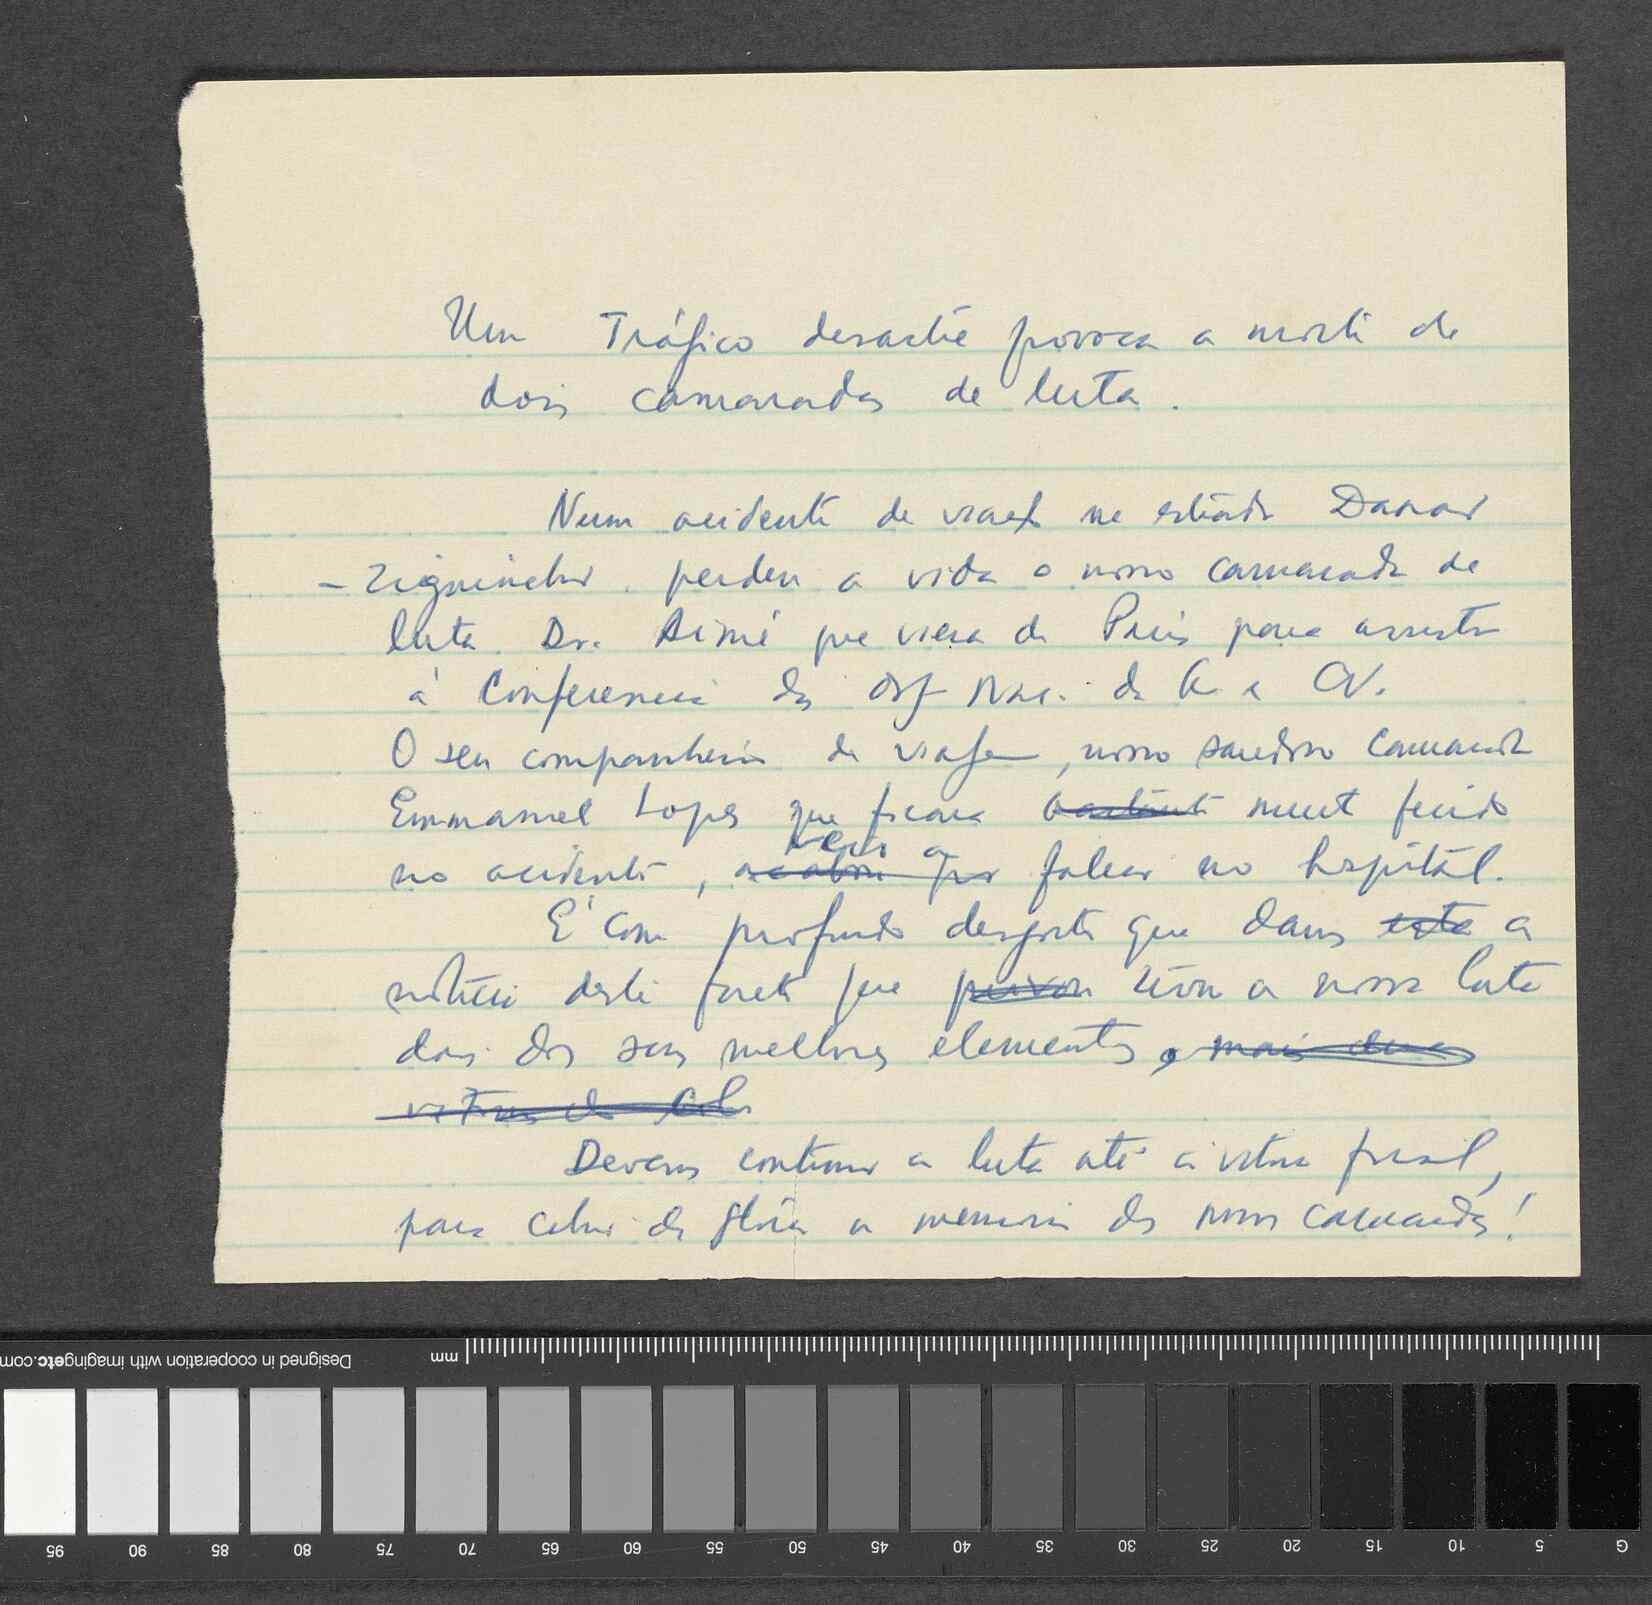 Um Trágico desastre provoca a morte de
dois camaradas de luta.
Num acidente de viação na estrada Dakar
- Ziguinchor perdeu a vida o nosso camarada de
luta Dr. Aimé que viera de Paris para assistir
à Conferencia das Org Nac. da G. e CV.
O seu companheiro de viagem, nosso saudoso camarada
Emmanuel Lopes que ficara bastante muito ferido
veio a
no acidente, acabou por falecer no hospital.
É com profundo desgosto que damos esta a
notícia deste facto que privou tirou a nossa luta
dois dos seus melhores elementos, mais duas
vitimas do
Devemos continuar a luta até à vitoria final,
para cobrir de glória a memoria dos nossos camaradas!
Designed in cooperation with imagingetc.com
mm
95 90 85 80 75 70 65 60 55 50 45 40 35 30 25 20 15 10 5 G